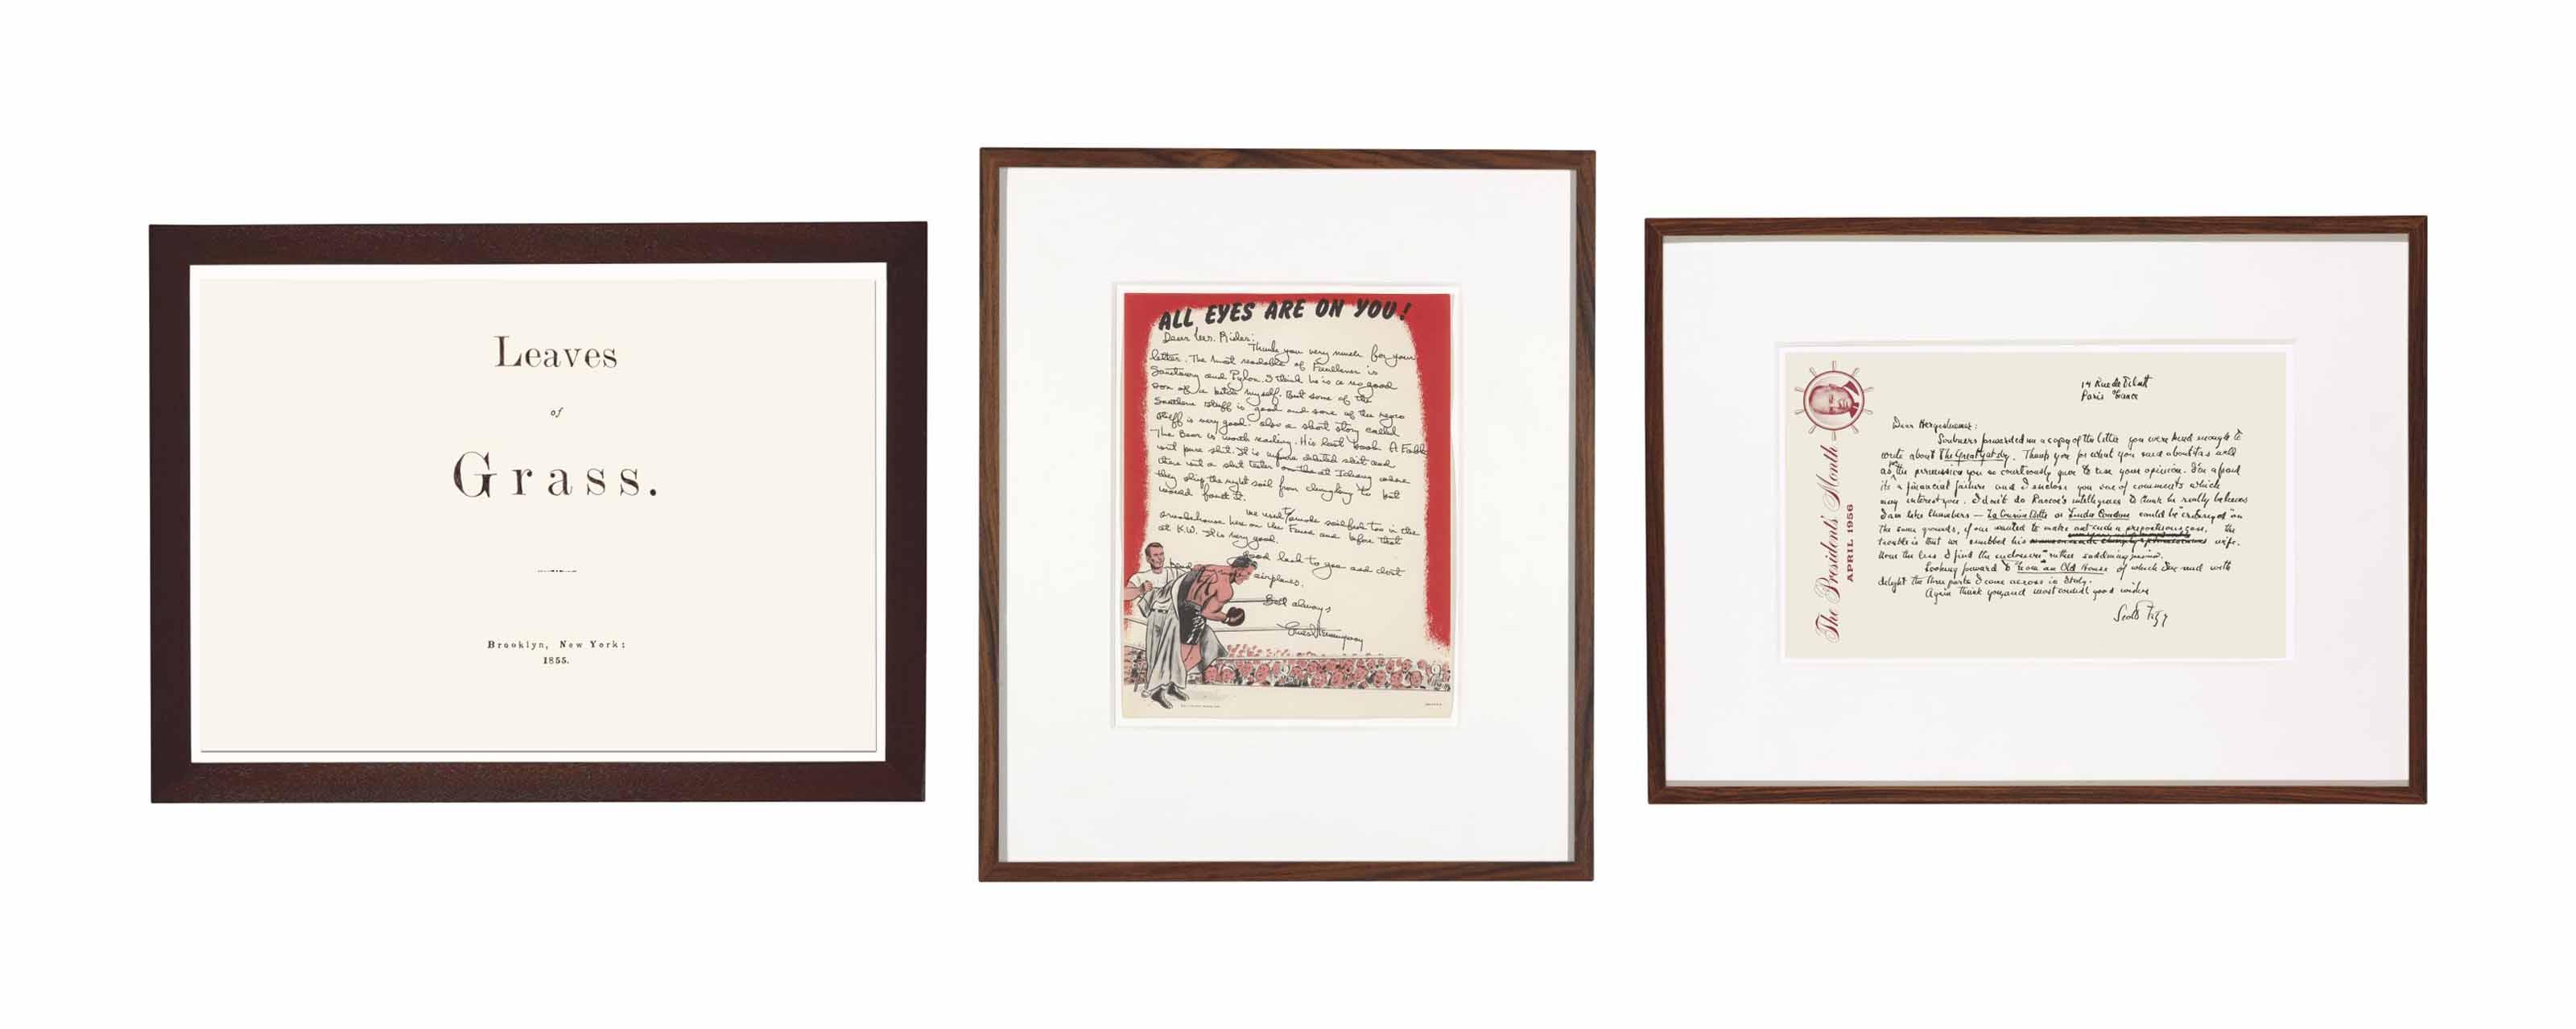 Leaves
of
Grass.
Brooklyn, New York:
1855.
ALL EYES ARE ON YOU!
Dear Mrs. Rider:
Thank you very much for your
letter. The most readable of Faulkner is
Sanctuary and Pylon. I think he is a no good
son of a bitch myself. But some of the
Southern stuff is good and some of the negro
stuff is very good. Also a short story called
The Bear is worth reading. His last book A Fable
isn't pure shit. It is impure diluted shit and
there isn't a shit tester at Ichang where
they ship the night soil from Chungking to but
would fault it.
We used to smoke sailfish too in the
smokehouse here on the Finca and before that
at K.W. It is very good.
Good luck to you and don't
airplanes.
Best always
Ernest Hemingway
The Presidents' Month
APRIL 1956
14 Rue de Tilsitt
Paris France
Dear Hergesheimer:
Scribners forwarded me a copy of the letter you were kind enough to
write about The Great Gatsby. Thank you for what you said about it as well
as the permission you so courteously gave to use your opinion. I'm afraid
its a financial failure and I enclose you one of comments which
may interest you. I don't do Rascoe's intelligence to think he really believes
I am like Chambers — La Cousine Bette or Linda Condon could be "critery of" on
the same grounds, if one wanted to make out such a preposterous case. The
trouble is that we snubbed his wife.
None the less I find the enclosure rather saddening
Looking forward to "From an Old House" of which I've read with
delight the three parts I came across in Italy.
Again thank you and most cordial good wishes
Scott Fitz